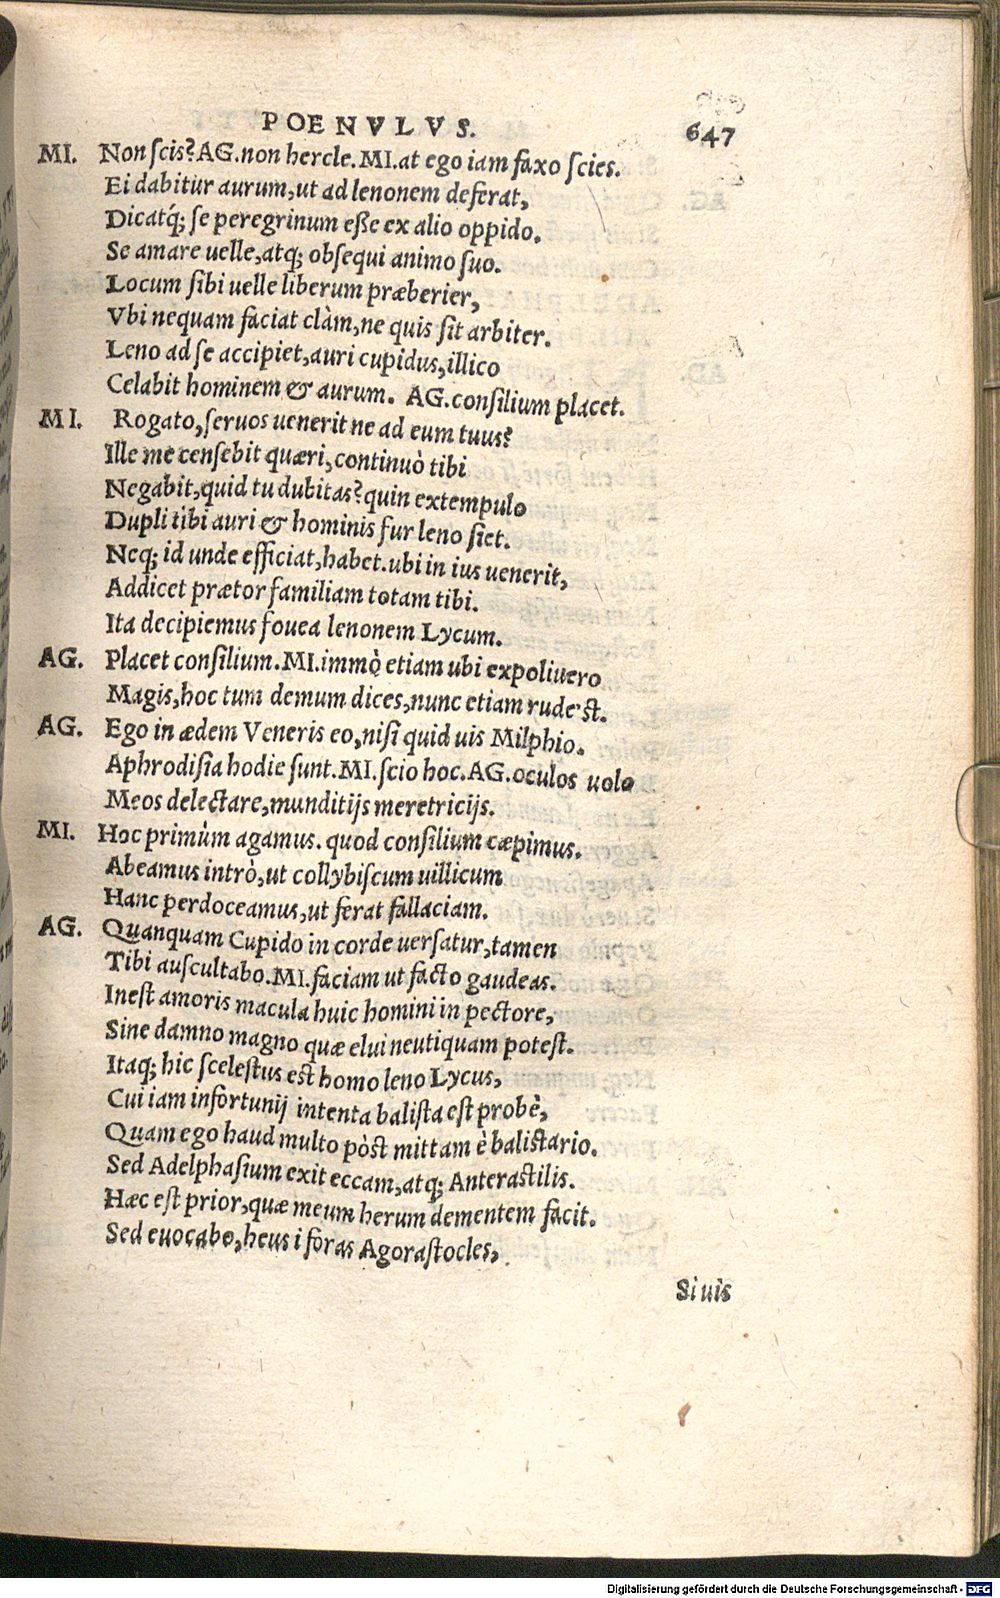 POENVLVS. 647
MI. Non scis? AG. non hercle. MI. at ego iam faxo scies.
Ei dabitur aurum, ut ad lenonem deferat,
Dicatq́; se peregrinum esse ex alio oppido.
Se amare uelle, atq; obsequi animo suo.
Locum sibi uelle liberum præberier,
Vbi nequam faciat clàm, ne quis sit arbiter.
Leno ad se accipiet, auri cupidus, illico
Celabit hominem & aurum. AG. consilium placet.
MI. Rogato, seruos uenerit ne ad eum tuus?
Ille me censebit quæri, continuò tibi
Negabit, quid tu dubitas? quin extempulo
Dupli tibi auri & hominis fur leno siet.
Neq; id unde efficiat, habet. ubi in ius uenerit,
Addicet prætor familiam totam tibi.
Ita decipiemus fouea lenonem Lycum.
AG. Placet consilium. MI. immò etiam ubi expoliuero
Magis, hoc tum demum dices, nunc etiam rude'st.
AG. Ego in ædem Veneris eo, nisi quid uis Milphio.
Aphrodisia hodie sunt. MI. scio hoc. AG. oculos uolo
Meos delectare, munditijs meretricijs.
MI. Hoc primùm agamus. quod consilium cæpimus.
Abeamus intrò, ut collybiscum uillicum
Hanc perdoceamus, ut ferat fallaciam.
AG. Quanquam Cupido in corde uersatur, tamen
Tibi auscultabo. MI. faciam ut facto gaudeas.
Inest amoris macula huic homini in pectore,
Sine damno magno quæ elui neutiquam potest.
Itaq; hic scelestus est homo leno Lycus,
Cui iam infortunij intenta balista est probè,
Quam ego haud multo pòst mittam è balistario.
Sed Adelphasium exit eccam, atq; Anterastilis.
Hæc est prior, quæ meum herum dementem facit.
Sed euocabo, heus i foras Agorastocles,
Si uis
Digitalisierung gefördert durch die Deutsche Forschungsgemeinschaft - DFG